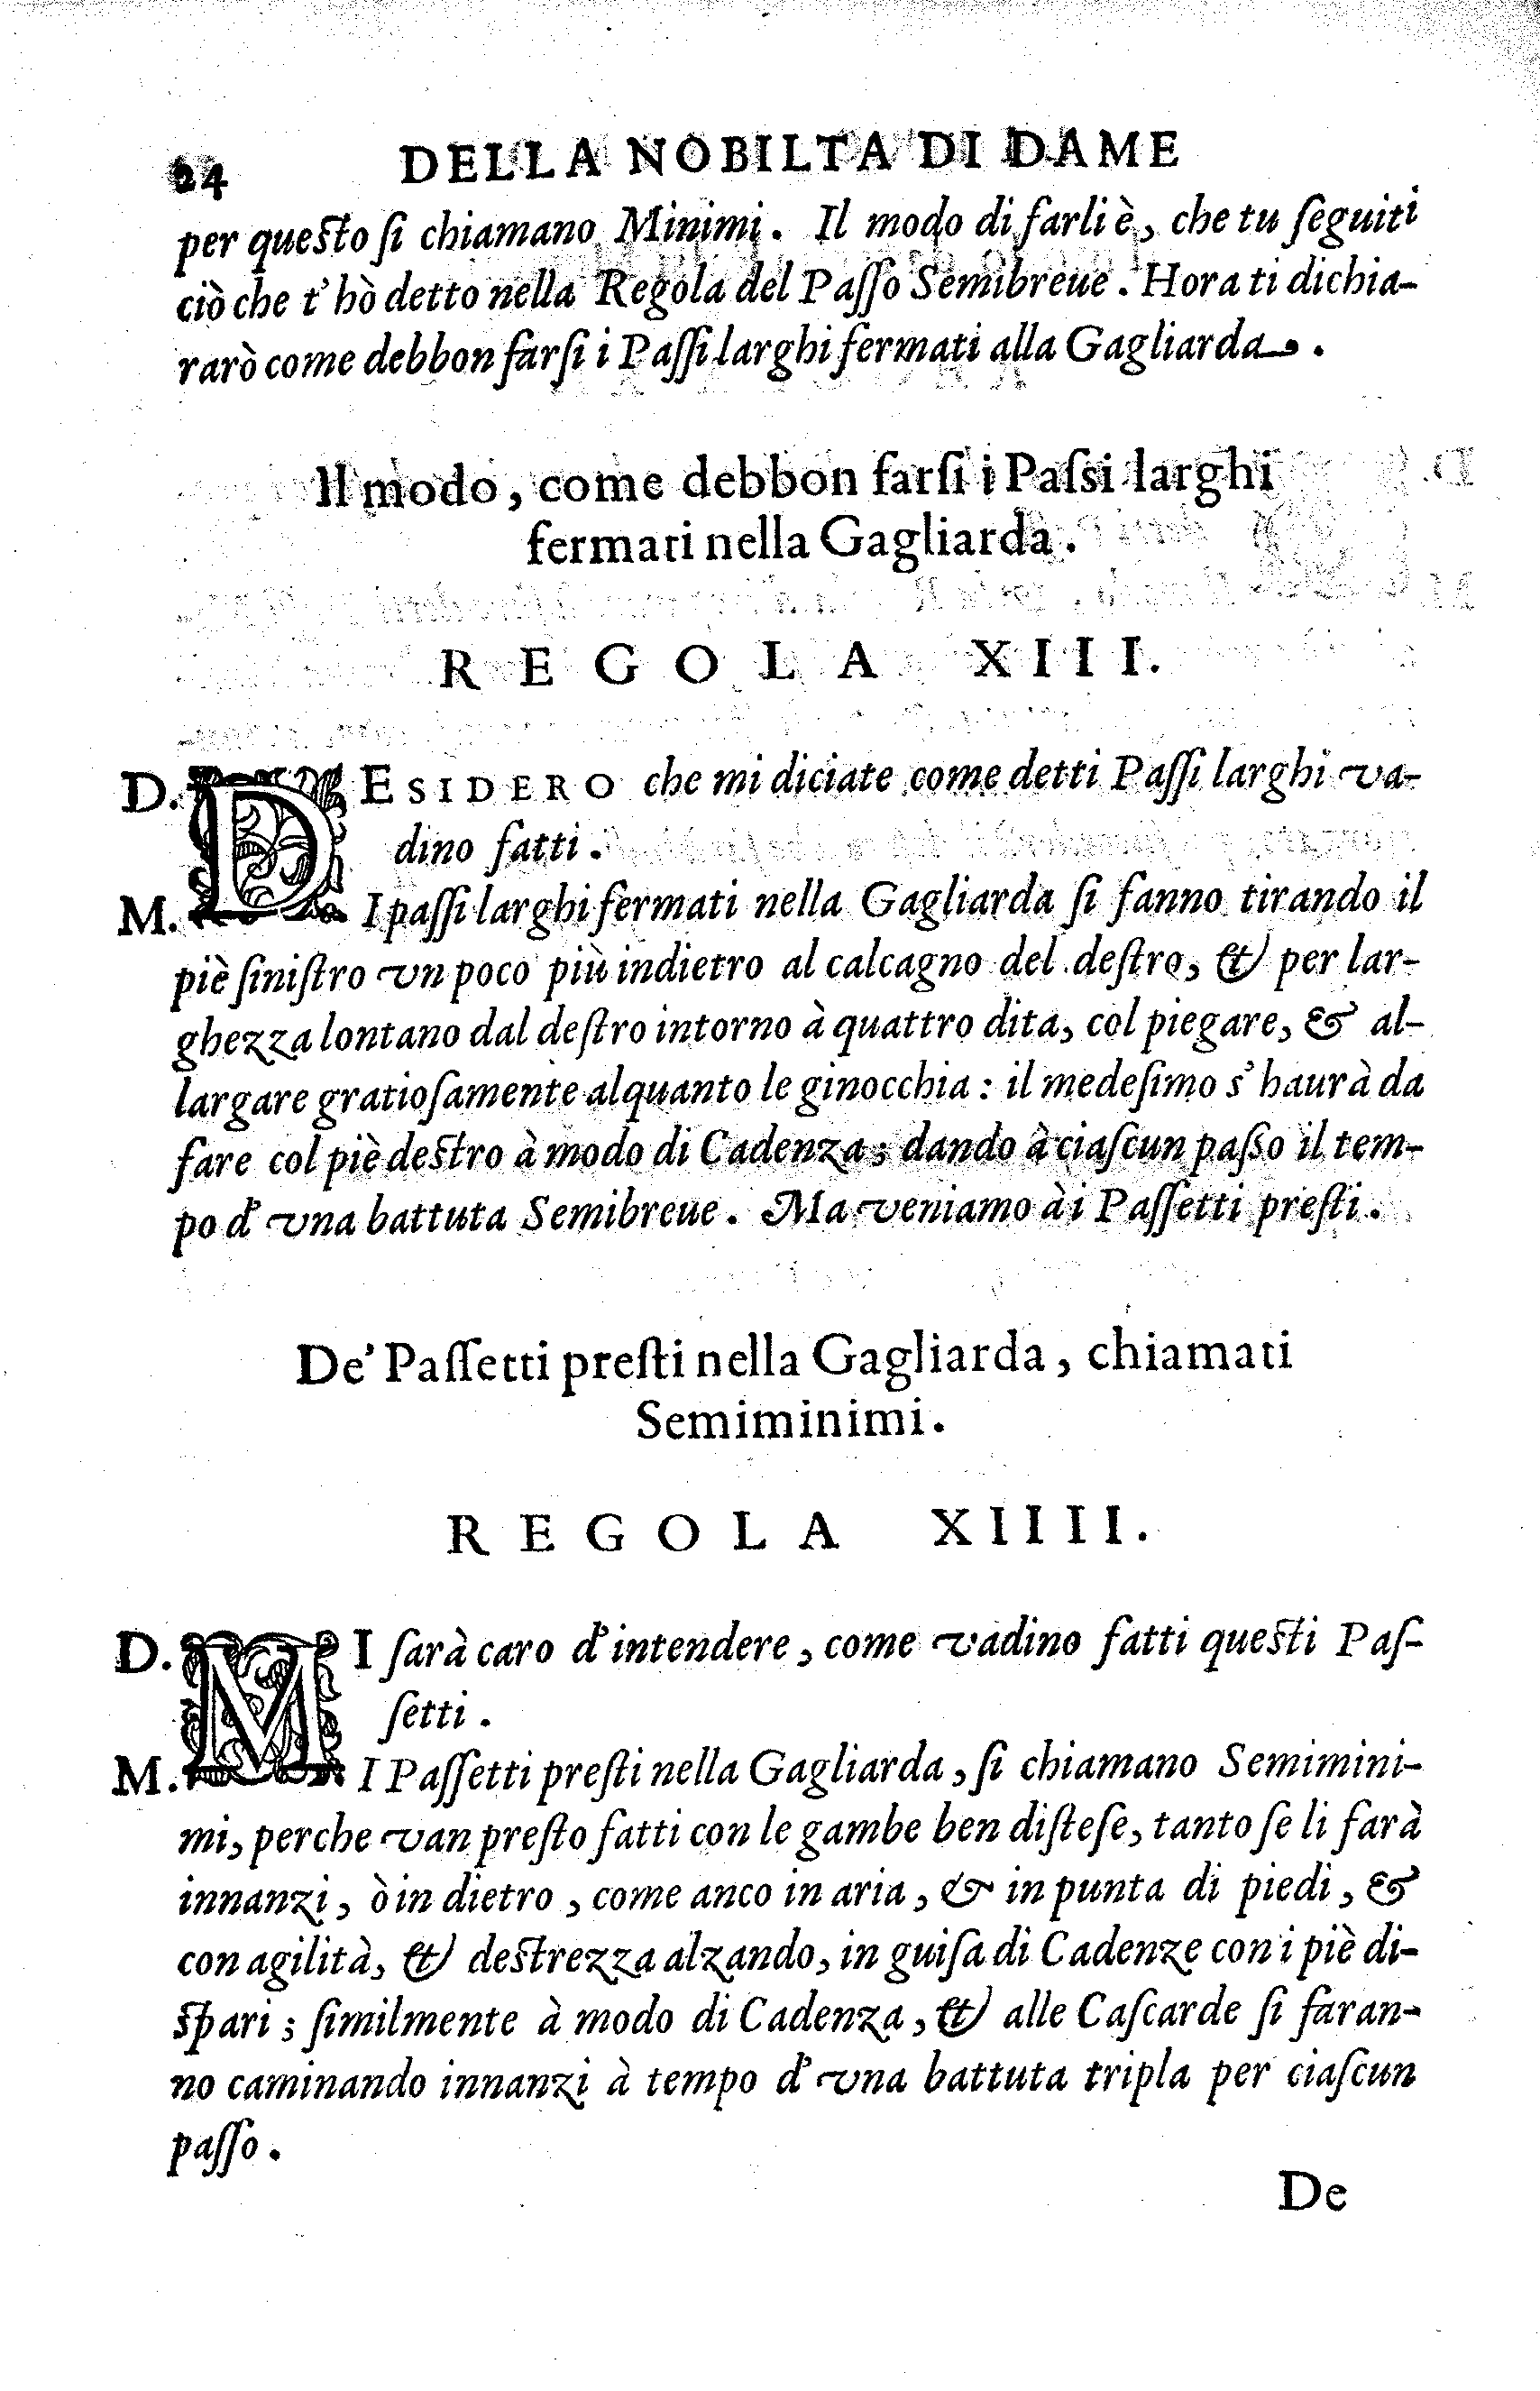 24 DELLA NOBILTA DI DAME
per queſto ſi chiamano Minimi. Il modo di farli è, che tu ſeguiti
ciò che t'hò detto nella Regola del Paſſo Semibreue. Hora ti dichia-
rarò come debbon farſi i Paſſi larghi fermati alla Gagliarda.
Il modo, come debbon farſi i Paſsi larghi
fermati nella Gagliarda.
REGOLA XIII.
D. DESIDERO che mi diciate come detti Paſſi larghi va-
dino fatti.
M. I paſſi larghi fermati nella Gagliarda ſi fanno tirando il
piè ſiniſtro vn poco più indietro al calcagno del deſtro, & per lar-
ghezza lontano dal deſtro intorno à quattro dita, col piegare, & al-
largare gratioſamente alquanto le ginocchia: il medeſimo s'haurà da
fare col piè deſtro à modo di Cadenza; dando à ciaſcun paſso il tem-
po d'vna battuta Semibreue. Ma veniamo à i Paſſetti preſti.
De' Paſſetti preſti nella Gagliarda, chiamati
Semiminimi.
REGOLA XIIII.
D. MI ſarà caro d'intendere, come vadino fatti queſti Paſ-
ſetti.
M. I Paſſetti preſti nella Gagliarda, ſi chiamano Semimini-
mi, perche van preſto fatti con le gambe ben diſteſe, tanto ſe li farà
innanzi, ò in dietro, come anco in aria, & in punta di piedi, &
con agilità, & deſtrezza alzando, in guiſa di Cadenze con i piè di-
ſpari; ſimilmente à modo di Cadenza, & alle Caſcarde ſi faran-
no caminando innanzi à tempo d'vna battuta tripla per ciaſcun
paſſo.
De